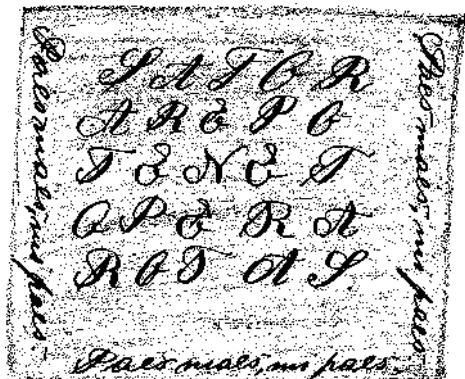 S A T O R
A R E P O
T E N E T
O P E R A
R O T A S.
Paes maes, paes-
Paes maes, paes-
Paes maes, paes.